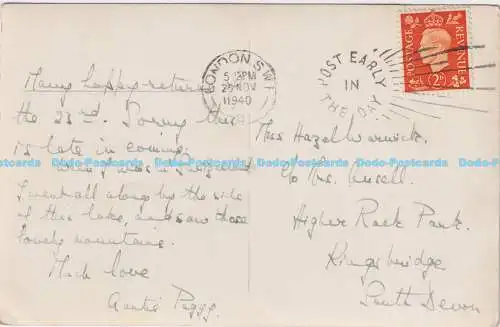 Many happy returns
the 23rd. Sorry this
is late in coming.
When I was in Switzerland
I went all along by the side
of this lake, and saw those
lovely mountains.
Much love
Auntie Peggy.
LONDON S.W.1
5 PM
NOV
1940
POST EARLY
IN
THE DAY
POSTAGE
REVENUE
2D
Miss Hazel Warwick.
c/o Mrs. Ansell.
Higher Rock Park.
Kingsbridge
South Devon
Dodo-Postcards Dodo-Postcards Dodo-Postcards Dodo-Postcards Dodo-Postcards